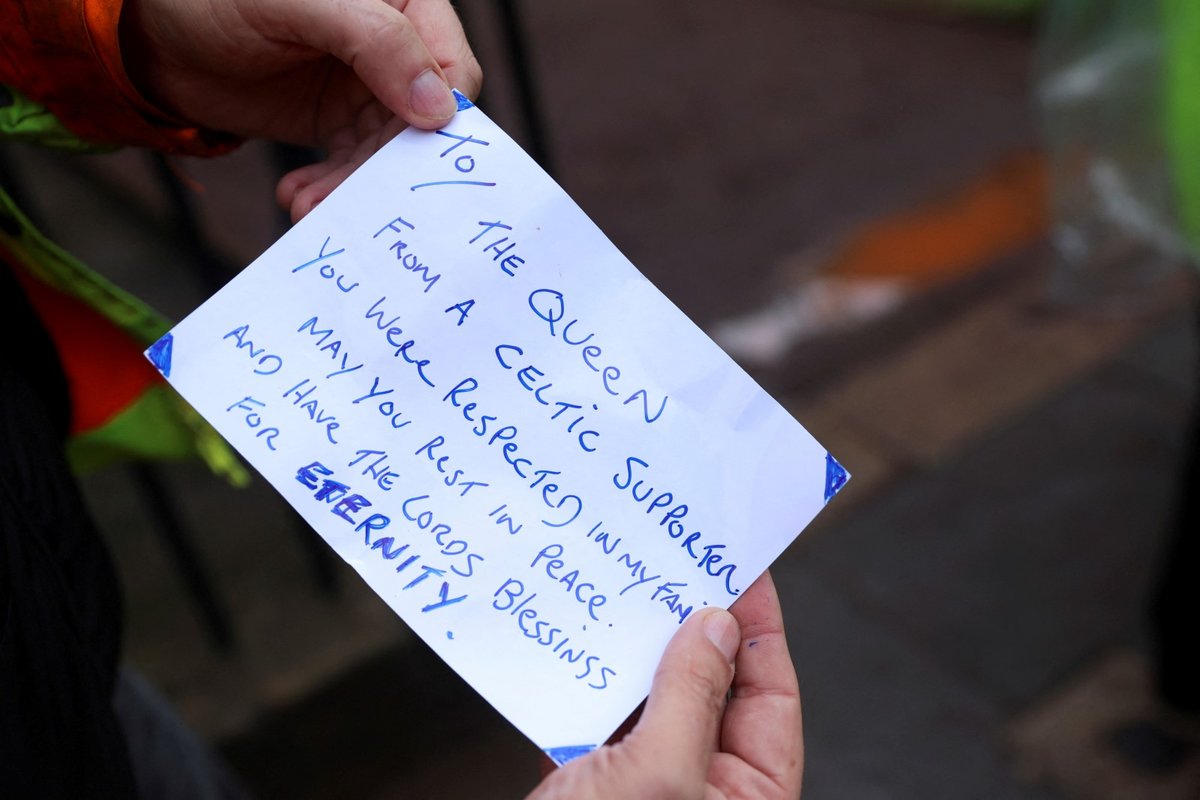 To/
THE QUEEN
FROM A CELTIC SUPPORTER.
YOU WERE RESPECTED IN MY FAM
MAY YOU REST IN PEACE.
AND HAVE THE LORDS BLESSINGS
FOR ETERNITY.